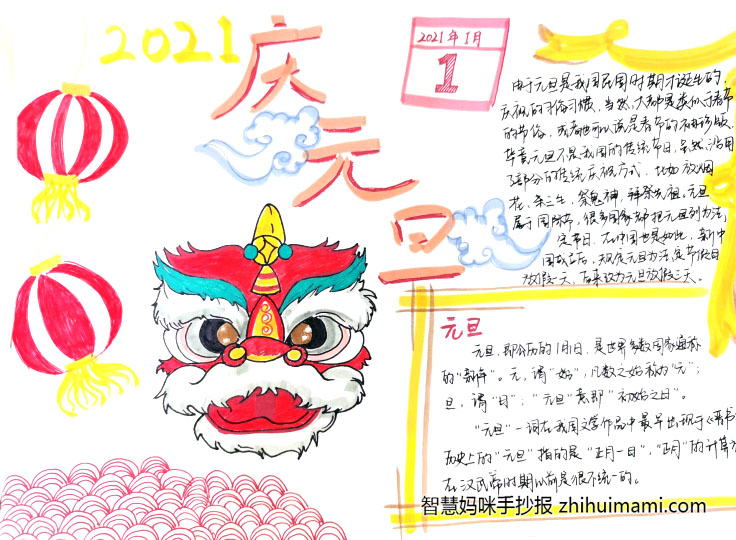 2021
庆
元
旦
2021年1月
1
由于元旦是我国民国时期才诞生的,
庆祝的习俗习惯,当然,大都是类似于春节
的节俗,或者也可以说是春节的初步缩版,
毕竟元旦不是我国的传统节日,虽然沿用
了部分的传统庆祝方式,比如放烟
花、杀三生、祭鬼神、拜祭先祖。元旦
属于国际节,很多国家都把元旦列为法
定节日,在中国也是如此,新中
国成立后,规定元旦为法定节假日
放假一天,后来改为元旦放假三天。
元旦
元旦,即公历的1月1日,是世界多数国家通称
的“新年”。元,谓“始”,凡数之始称为“元”;
旦,谓“日”;“元旦”意即“初始之日”。
“元旦”一词在我国文学作品中最早出现于《晋书
历史上的“元旦”指的是“正月一日”,“正月”的计算方
在汉武帝时期以前是很不统一的。
智慧妈咪手抄报 zhihuimami.com